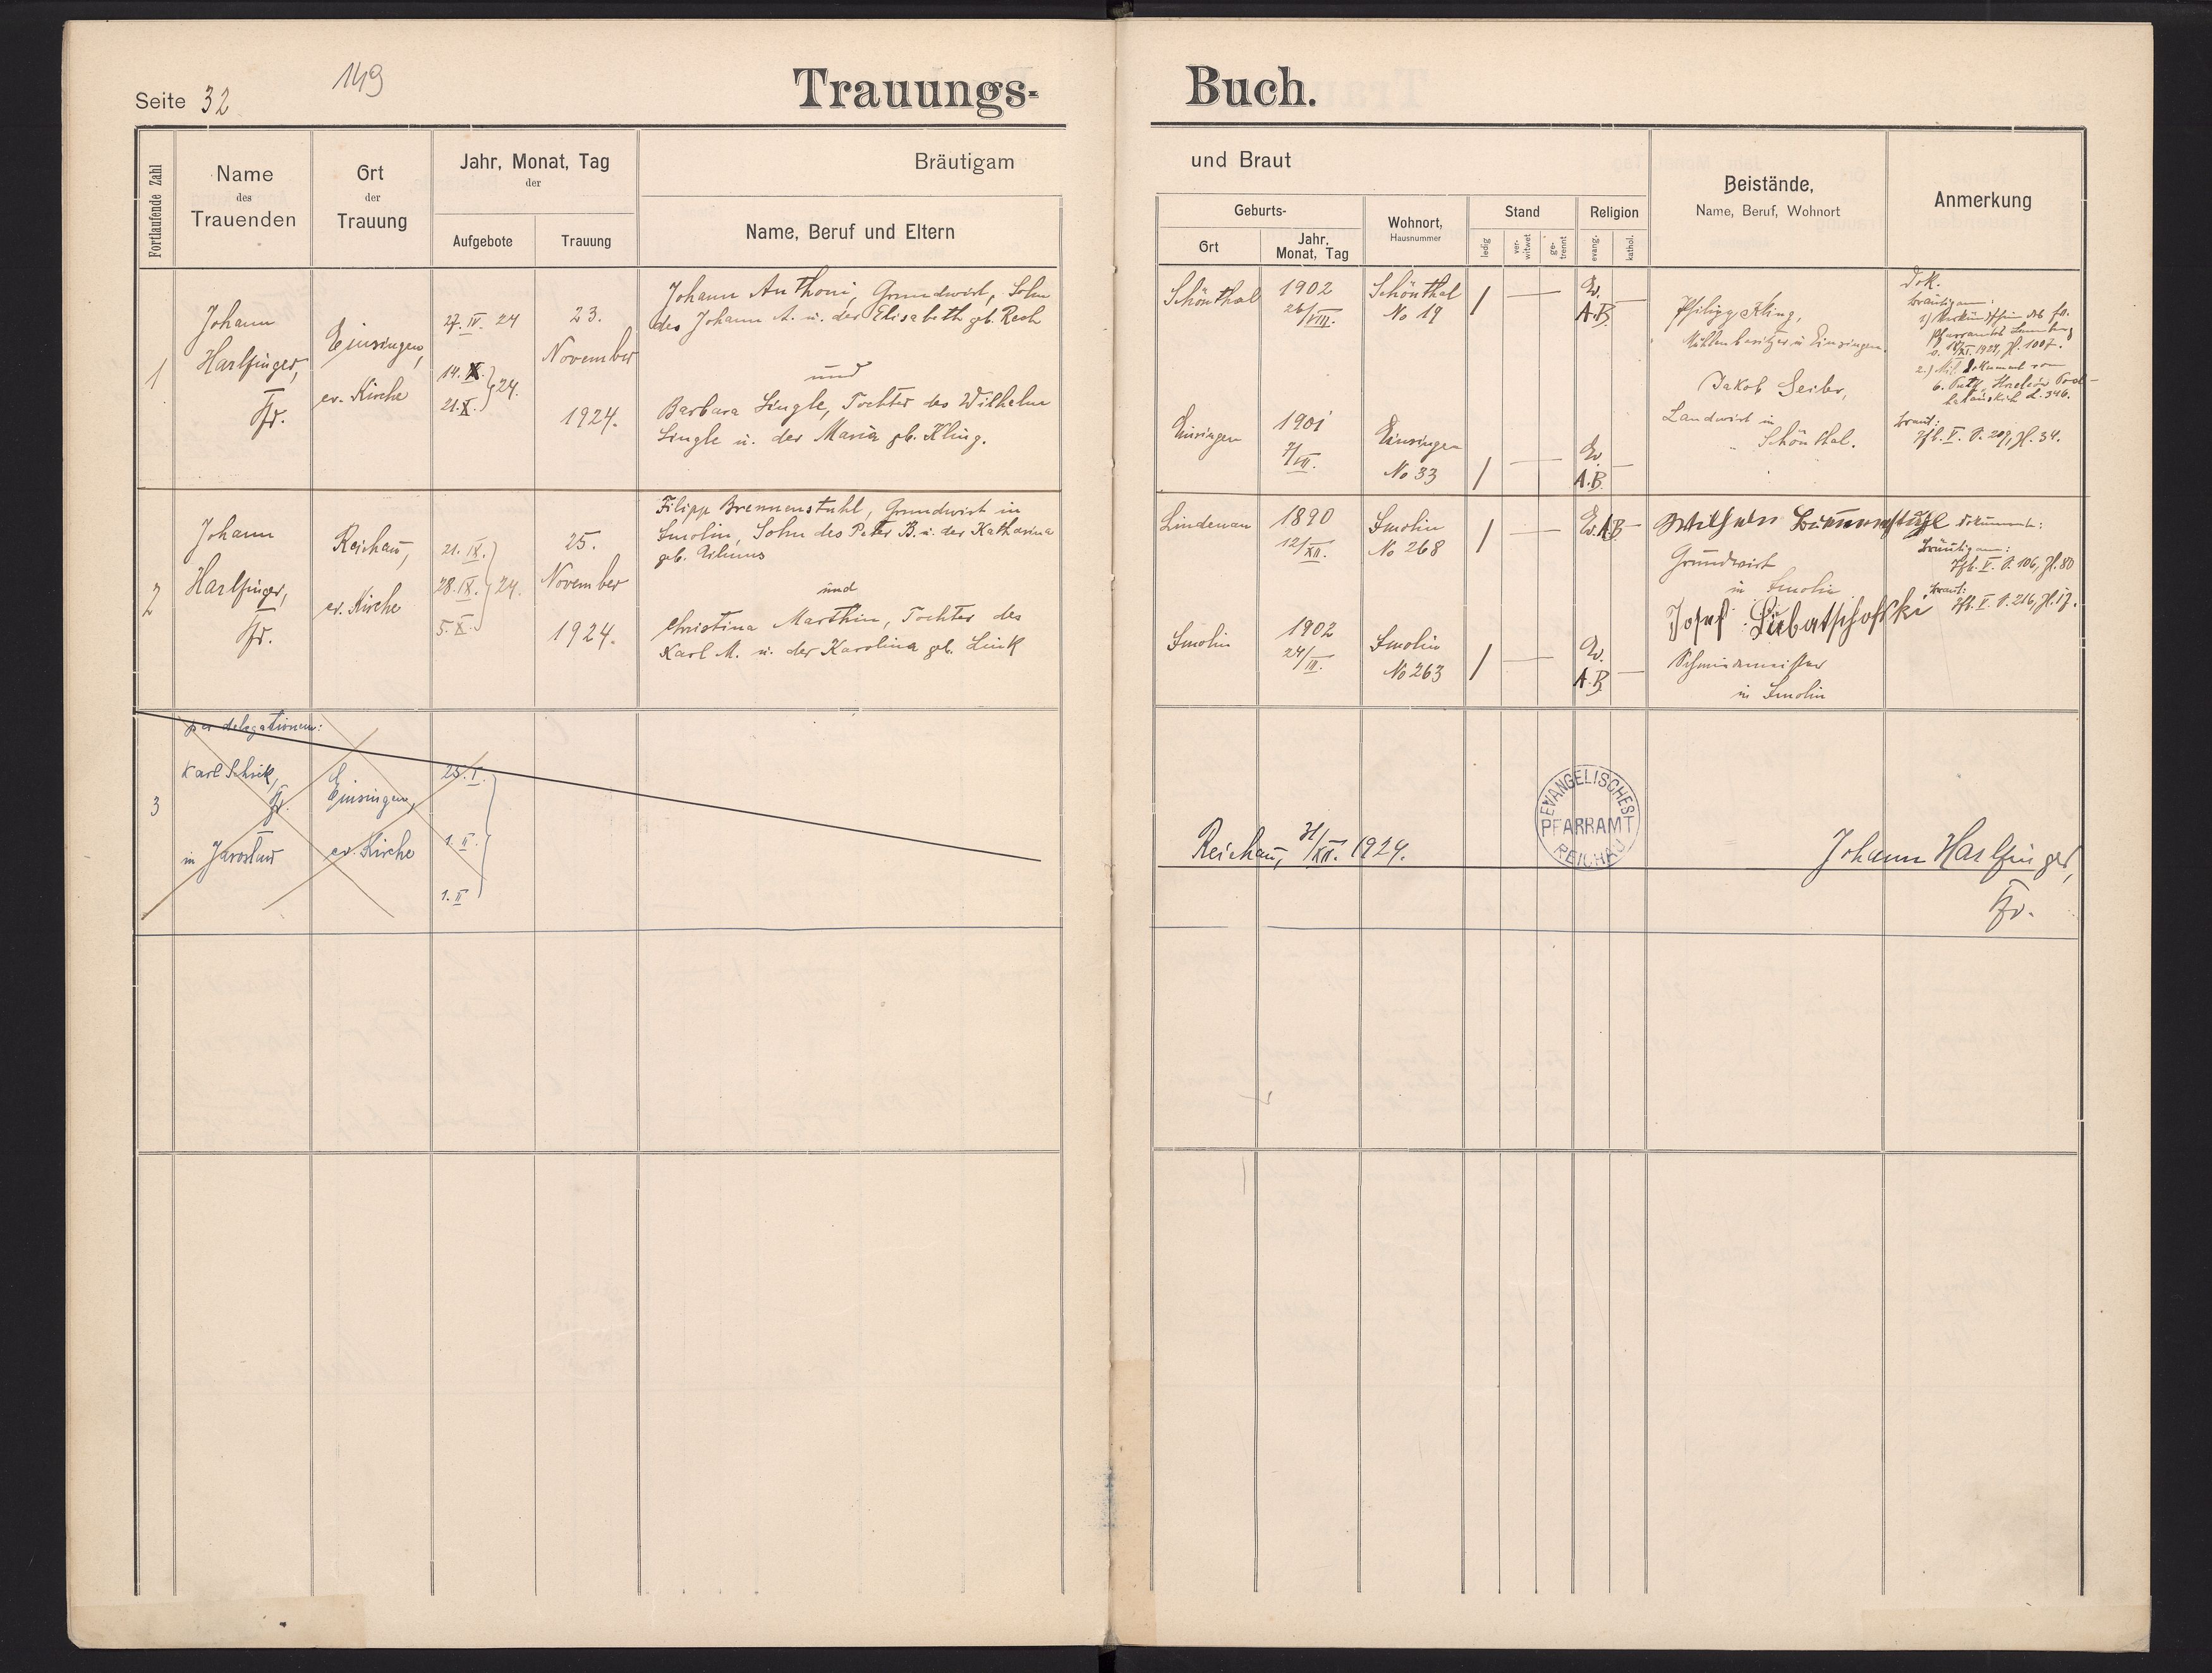 149
Seite 32
Trauungs-
Buch.
Fortlaufende Zahl
Name
des
Trauenden
Ort
der
Trauung
Jahr, Monat, Tag
der
Aufgebote
Trauung
Bräutigam
Name, Beruf und Eltern
und Braut
Geburts-
Ort
Jahr,
Monat, Tag
Wohnort,
Hausnummer
Stand
ledig
ver-
witwet
ge-
trennt
Religion
evang.
kathol.
Beistände,
Name, Beruf, Wohnort
Anmerkung
1
Johann
Harlfinger,
Pfr.
Einsingen,
ev. Kirche
27. IV. 24
14. X.
21. X. } 24.
23.
November
1924.
Johann Anthoni, Grundwirt, Sohn
des Johann A. u. der Elisabeth gb. Rech
und
Barbara Lingle, Tochter des Wilhelm
Lingle u. der Maria gb. Kling.
Schönthal
1902
26/VIII.
Schönthal
No 19
/
Ev.
A.B.
Einsingen
1901
7/VII.
Einsingen
No 33
/
Ev.
A.B.
Philipp Kling,
Mühlenbesitzer in Einsingen.
Jakob Seiler,
Landwirt in
Schönthal.
Dok.
Bräutigam:
2.) Mil. Dokument
Braut:
Tfb. V. S. 209, Zl. 34.
2
Johann
Harlfinger,
Pfr.
Reichau,
ev. Kirche
21. IX.
28. IX.
5. X. } 24.
25.
November
1924.
Filipp Brennenstuhl, Grundwirt in
Smolin, Sohn des Peter B. u. der Katharina
geb.
und
Christina Marthin, Tochter des
Karl M. u. der Karolina geb. Link
Lindenau
1890
12/XII.
Smolin
No 268
/
Ev. A.B.
Smolin
1902
24/III.
Smolin
No 263
/
Ev.
A.B.
Wilhelm Brennenstuhl
Grundwirt
in Smolin
Josef
Schmiedmeister
in Smolin
Dokumente:
Bräutigam:
Tfb. V. S. 106, Zl. 80
Braut:
Tfb. V. S. 216, Zl. 17.
3
per delegationem:
Karl Schick,
Pfr.
in Jaroslau
Einsingen,
ev. Kirche
25. I.
1. II.
1. II
Reichau, 31/XII. 1924.
EVANGELISCHES
PFARRAMT
REICHAU
Johann Harlfinger,
Pfr.